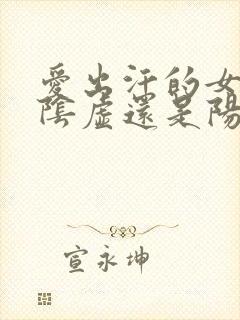 愛出汗的女
陰虛還是陽
宣永坤